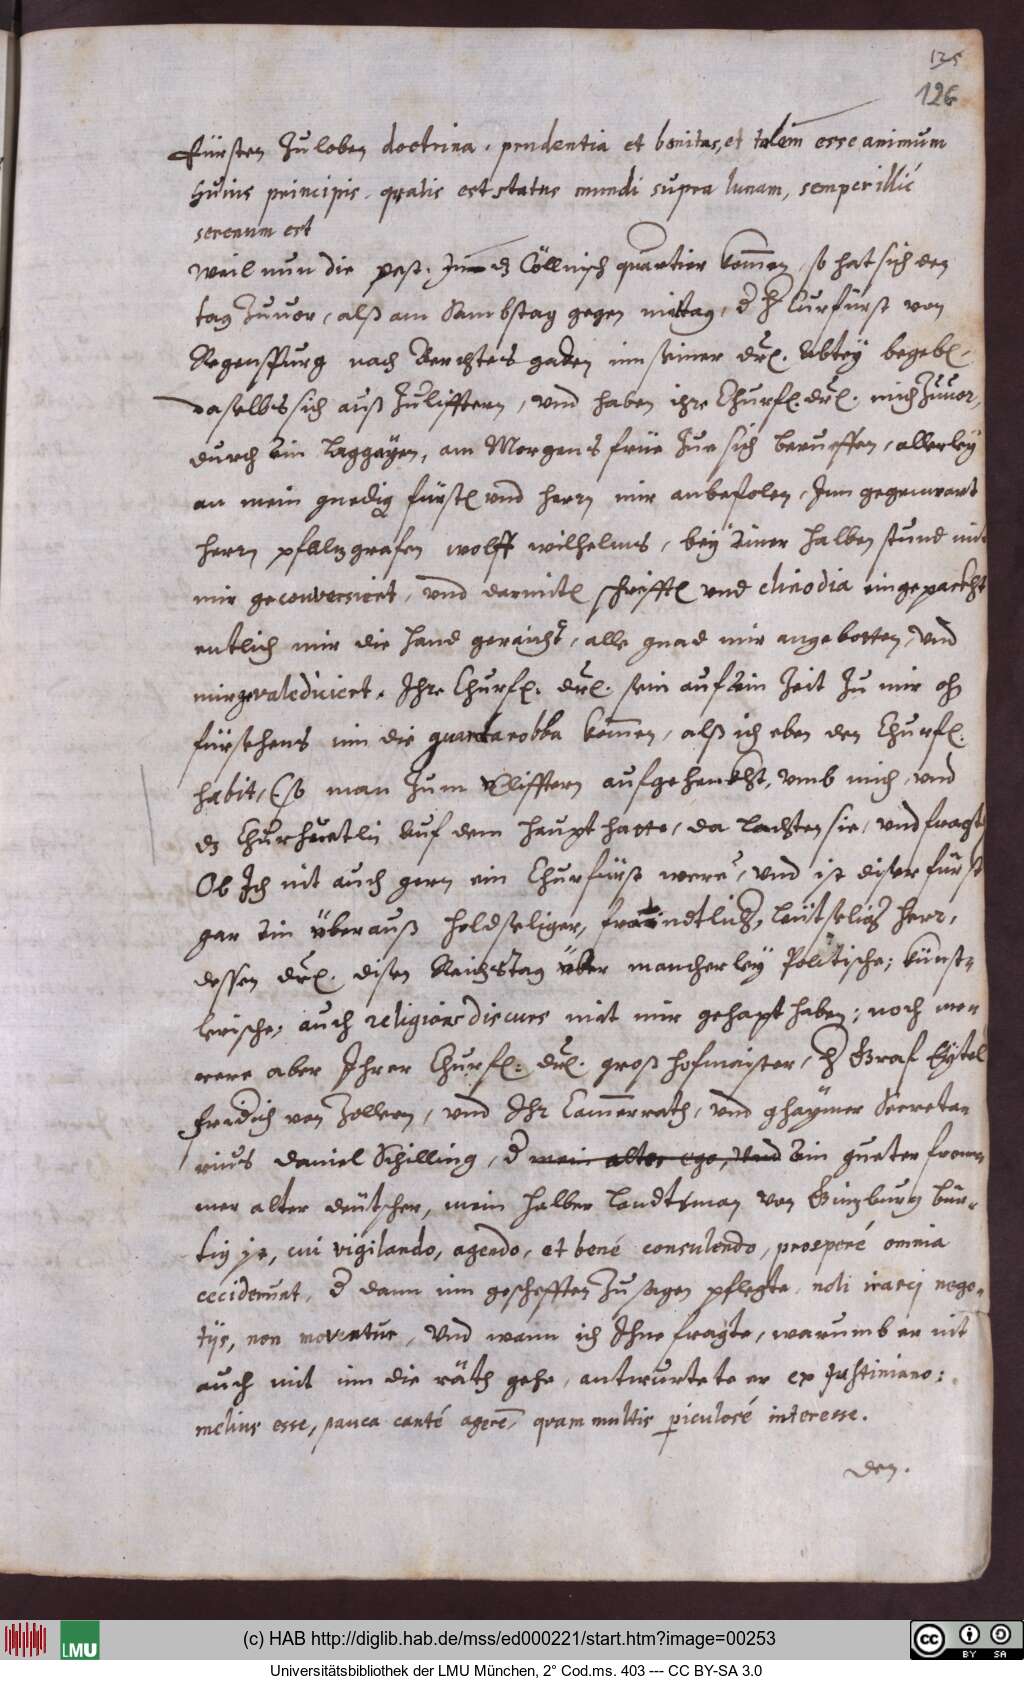 135
126
Fürsten Zu loben doctrina, prudentia et bonitas, et talem esse animum
huius principis, qualis est status mundi supra lunam, semper illic
serenum est
Weil nun die pest. Inn dz Cöllnisch quartier kommen, so hat sich den
tag Zuuor, alß am Sambstag gegen mittag, d h Curfürst von
Regenspurg nach Berchtersgaden inn seiner drl. Abtey begebl,
daselbs sich auß Zulifftern, vnd haben ihre Churfl. drl. mich Zuuor,
durch ein laggayen, am Morgens früe Zue sich berueffen, allerley
an mein gnedig fürstl vnd herrn mir anbefolen, Inn gegenwart
herrn pfalltzgrafen wolff wilhelms, bey einer halben stund mit
mir geconversiert, vnd darmitl schrifftl vnd clinodia eingepackht
entlich mir die hand geraicht, alle gnad mir angebotten, vnd
mir gevalediciert. Ihre Churfl. drl. sein auf ein Zeit Zu mir oh
fürsehens inn die guardarobba kommen, alß ich eben den Churfl.
habit, (so man Zum Elifftern aufgehenckht, vmb mich, vnd
dz Churhuetlin auf dem haupt hatte, da lachten sie, vnd fragt
Ob Ich nit auch gern ein Churfürst were, vnd ist diser fürst
gar ein überauß holdseliger, freundtlicher, leütseliger herr,
dessen drl. disen Reichstag über mancherley Politische; künst-
lerische; auch religions discurs mit mir gehapt haben; noch me-
rere aber Ihrer Churfl: drl. groß hofmaister, h Graf Eytel
Fridrich von Zollern, vnd Ihr Cammerrath, vnd ghaymer Secreta-
rius Daniel Schilling, d mein alter ego, vnd ein gueter from-
mer alter deütscher, mein halber landtsman von Güntzburg bür-
tig ist, cui vigilando, agendo, et bené consulendo, prosperé omnia
ceciderunt, d dann inn geschefften Zu sagen pflegte, noli irasci nego-
tijs, non moventur, Vnd wann ich Ihne fragte, warumb er nit
auch mit inn die räth gehe, antwurtete er ex Justiniano:
melius esse, pauca cauté agere, quam multis periculosé interesse.
den.
(c) HAB http://diglib.hab.de/mss/ed000221/start.htm?image=00253
LMU
BY SA
Universitätsbibliothek der LMU München, 2° Cod.ms. 403 --- CC BY-SA 3.0